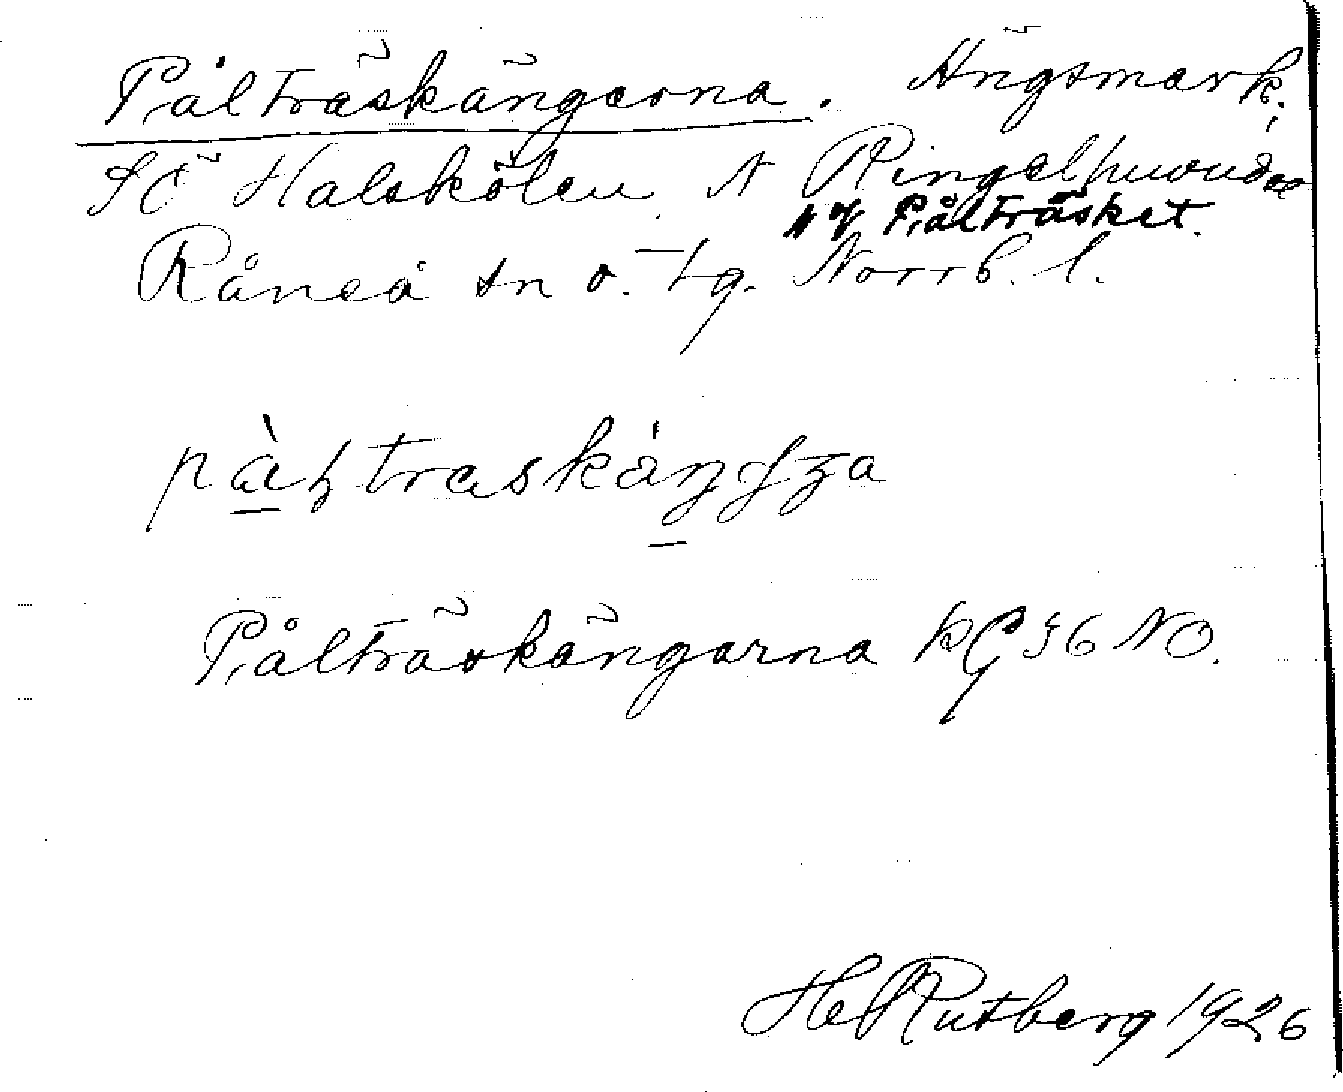 Pålträskängarna. Ängsmark.
SÖ Halskölen. N Ringelhuvudet
NV Pålträsket.
Råneå sn o. tg. Norrb. l.
Pålträskängarna kG 36 NO.
Hj Rutberg 1926